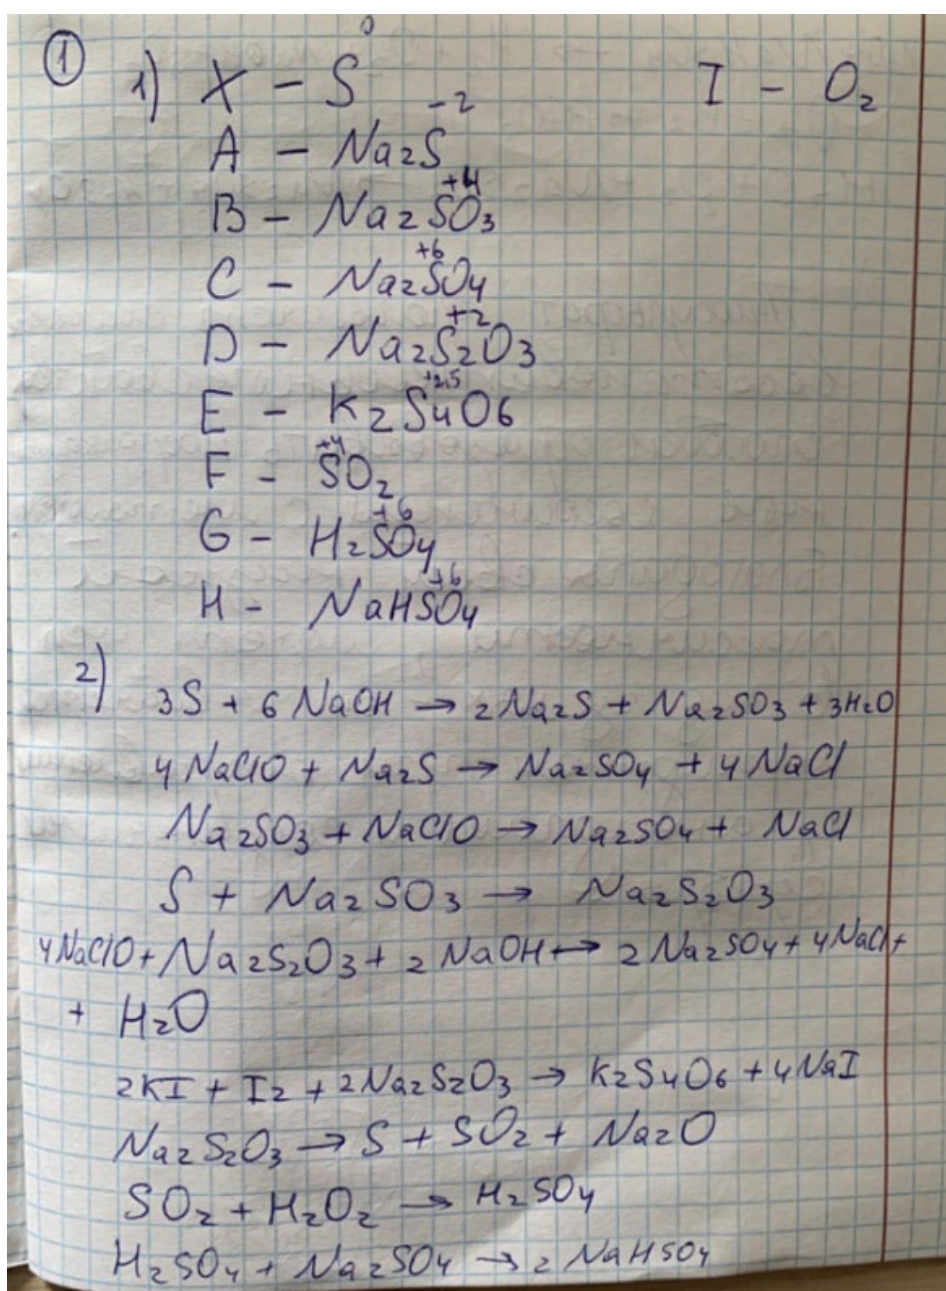 ① 1) X – S⁰ I – O₂
A – Na₂S⁻²
B – Na₂S⁺⁴O₃
C – Na₂S⁺⁶O₄
D – Na₂S⁺²₂O₃
E – K₂S⁺²·⁵₄O₆
F – S⁺⁴O₂
G – H₂S⁺⁶O₄
H – NaHS⁺⁶O₄
2) 3S + 6 NaOH → 2 Na₂S + Na₂SO₃ + 3H₂O
4 NaClO + Na₂S → Na₂SO₄ + 4 NaCl
Na₂SO₃ + NaClO → Na₂SO₄ + NaCl
S + Na₂SO₃ → Na₂S₂O₃
4NaClO + Na₂S₂O₃ + 2 NaOH → 2 Na₂SO₄ + 4NaCl +
+ H₂O
2KI + I₂ + 2Na₂S₂O₃ → K₂S₄O₆ + 4NaI
Na₂S₂O₃ → S + SO₂ + Na₂O
SO₂ + H₂O₂ → H₂SO₄
H₂SO₄ + Na₂SO₄ → 2 NaHSO₄